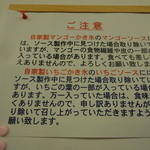 ご注意
自家製マンゴーかき氷のマンゴーソースに
ソース製作中に見つけた場合取り除いて
いますが、マンゴーの食物繊維や皮の一部が
入っている場合があります。食べても差
えありませんので、よろしくお願い致しま
自家製いちごかき氷のいちごソースに
ソース製作中に見つけた場合取り除いて
すが、いちごの葉の一部が入っている場合
あります。万一入っていた場合は、食味
くありませんので、申し訳ありませんが
除いて召し上がっていただきますよう
願い致します。